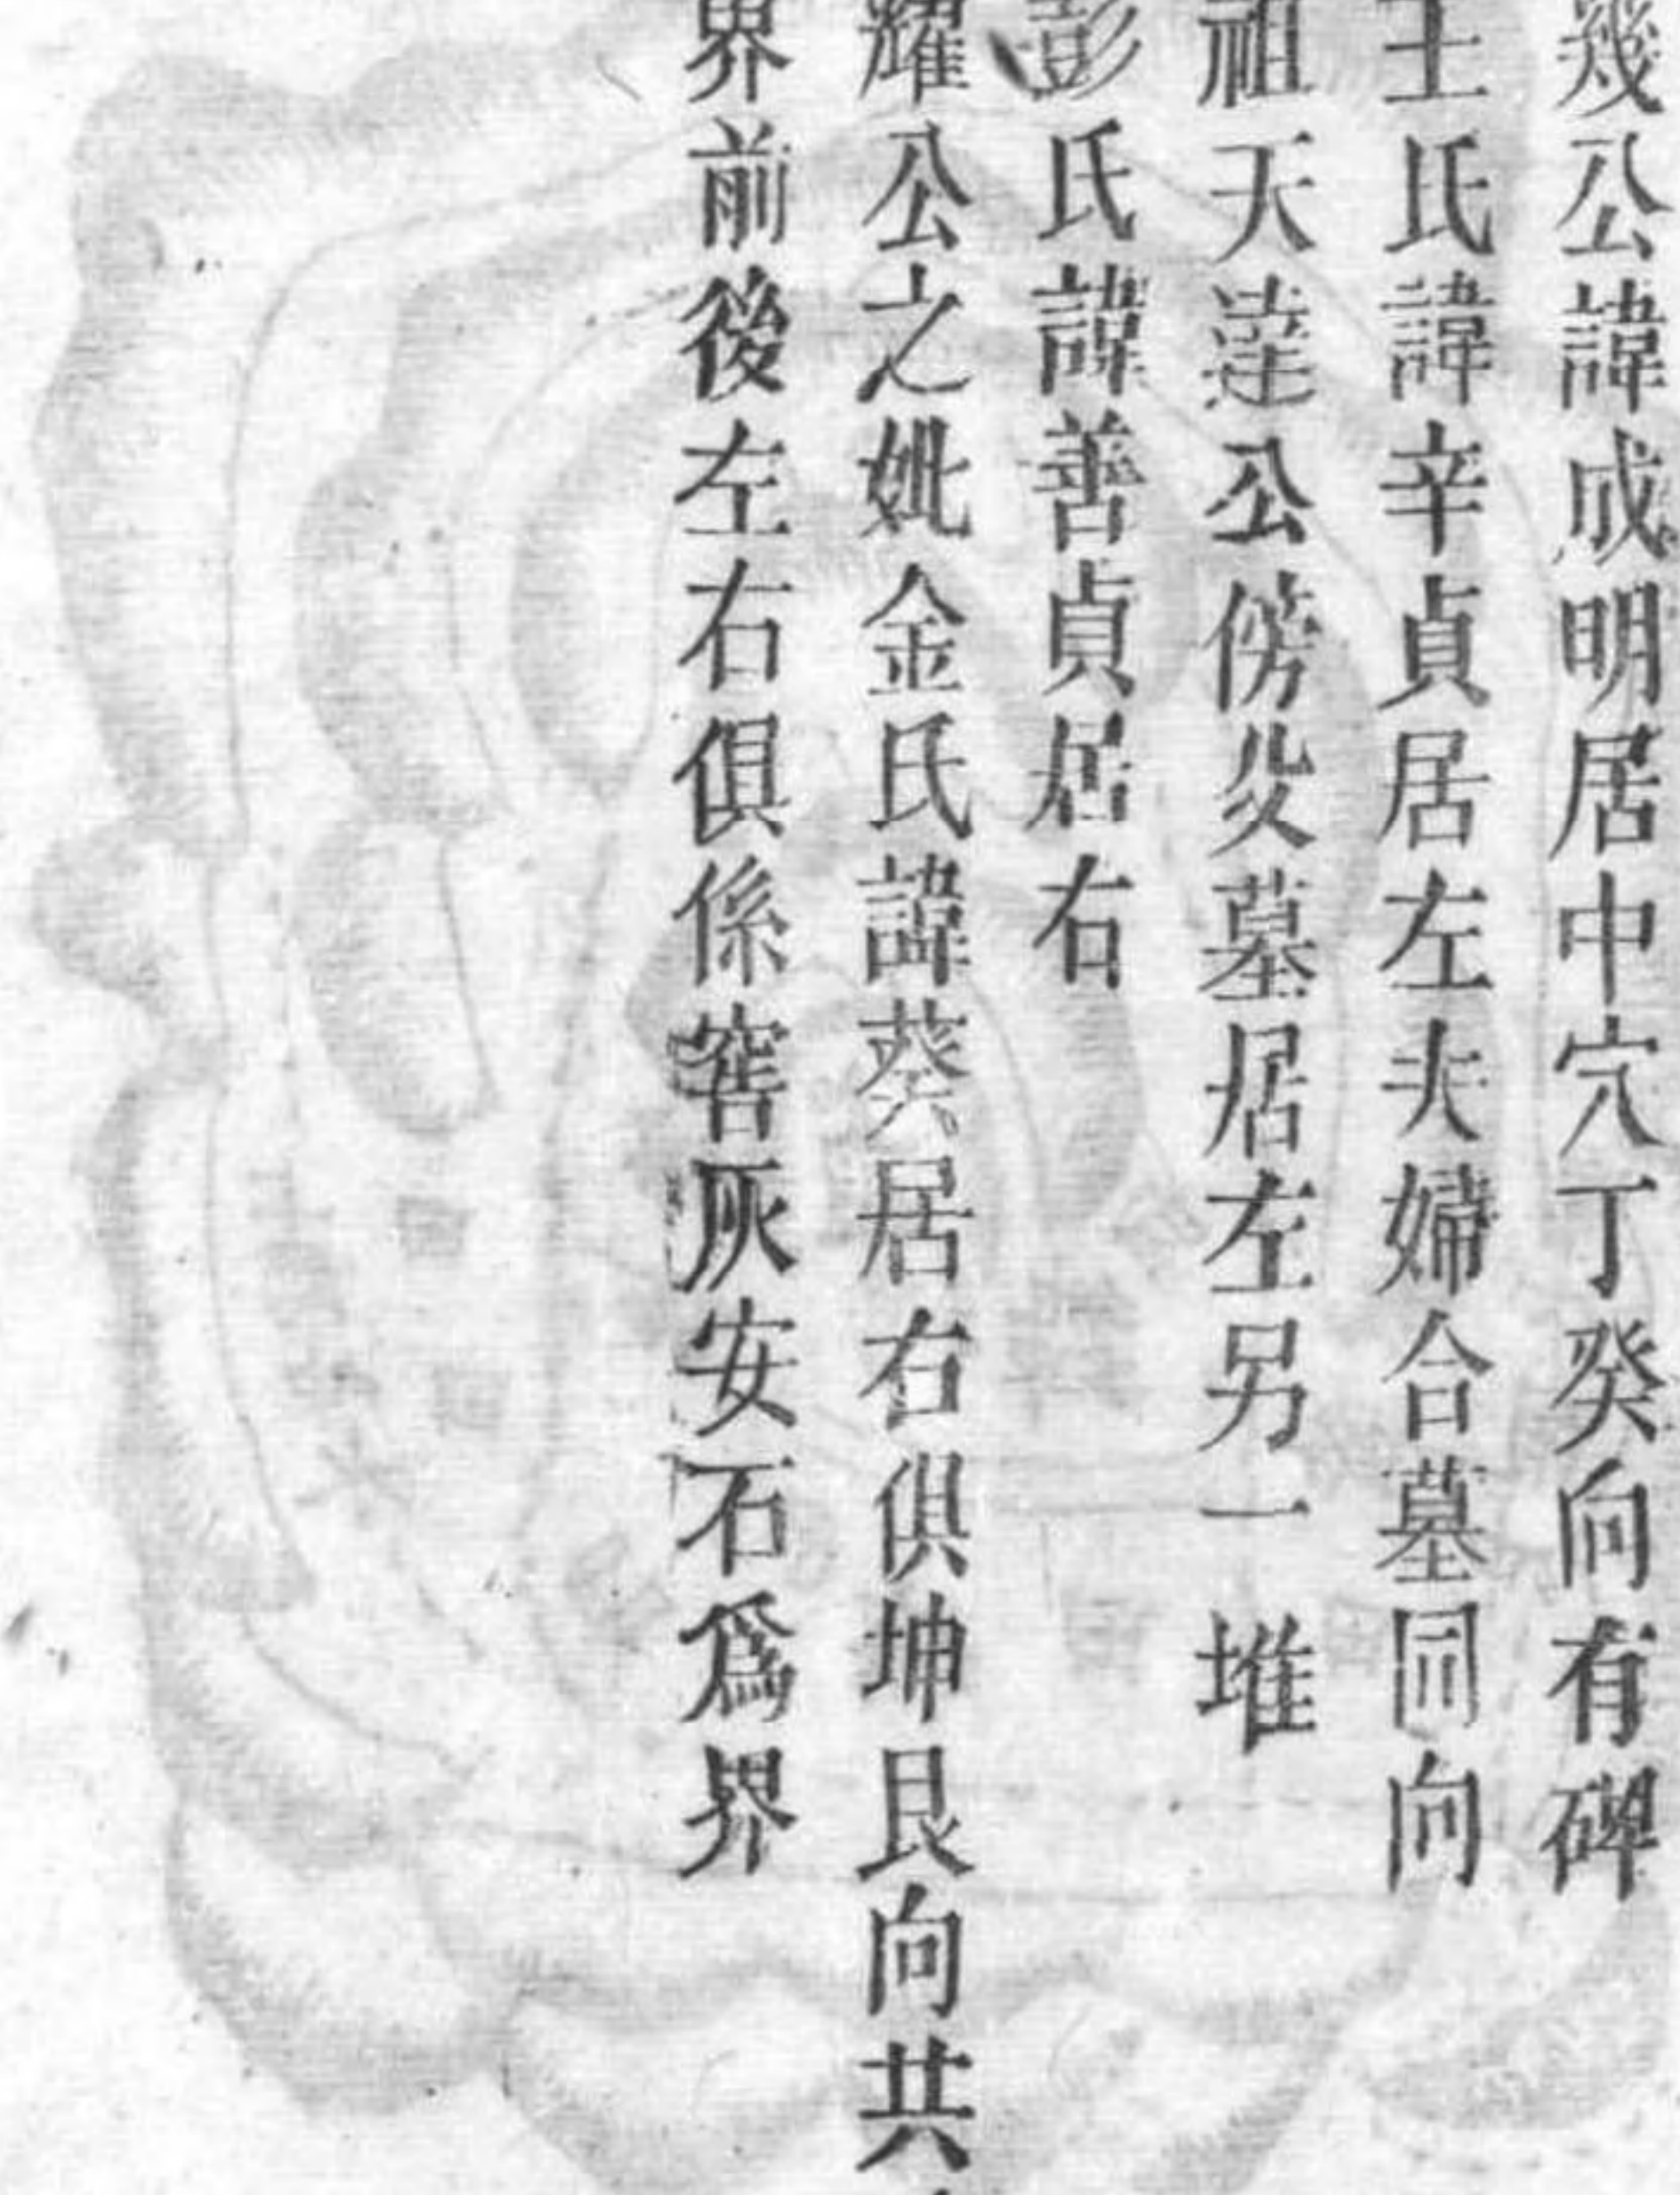 幾公諱成明居中穴丁癸向有碑
王氏諱辛貞居左夫婦合墓同向
祖天達公傍父墓居左另一堆
彭氏諱善貞居右
耀公之妣金氏諱葵居右俱坤艮向共
界前後左右俱係窖灰安石爲界